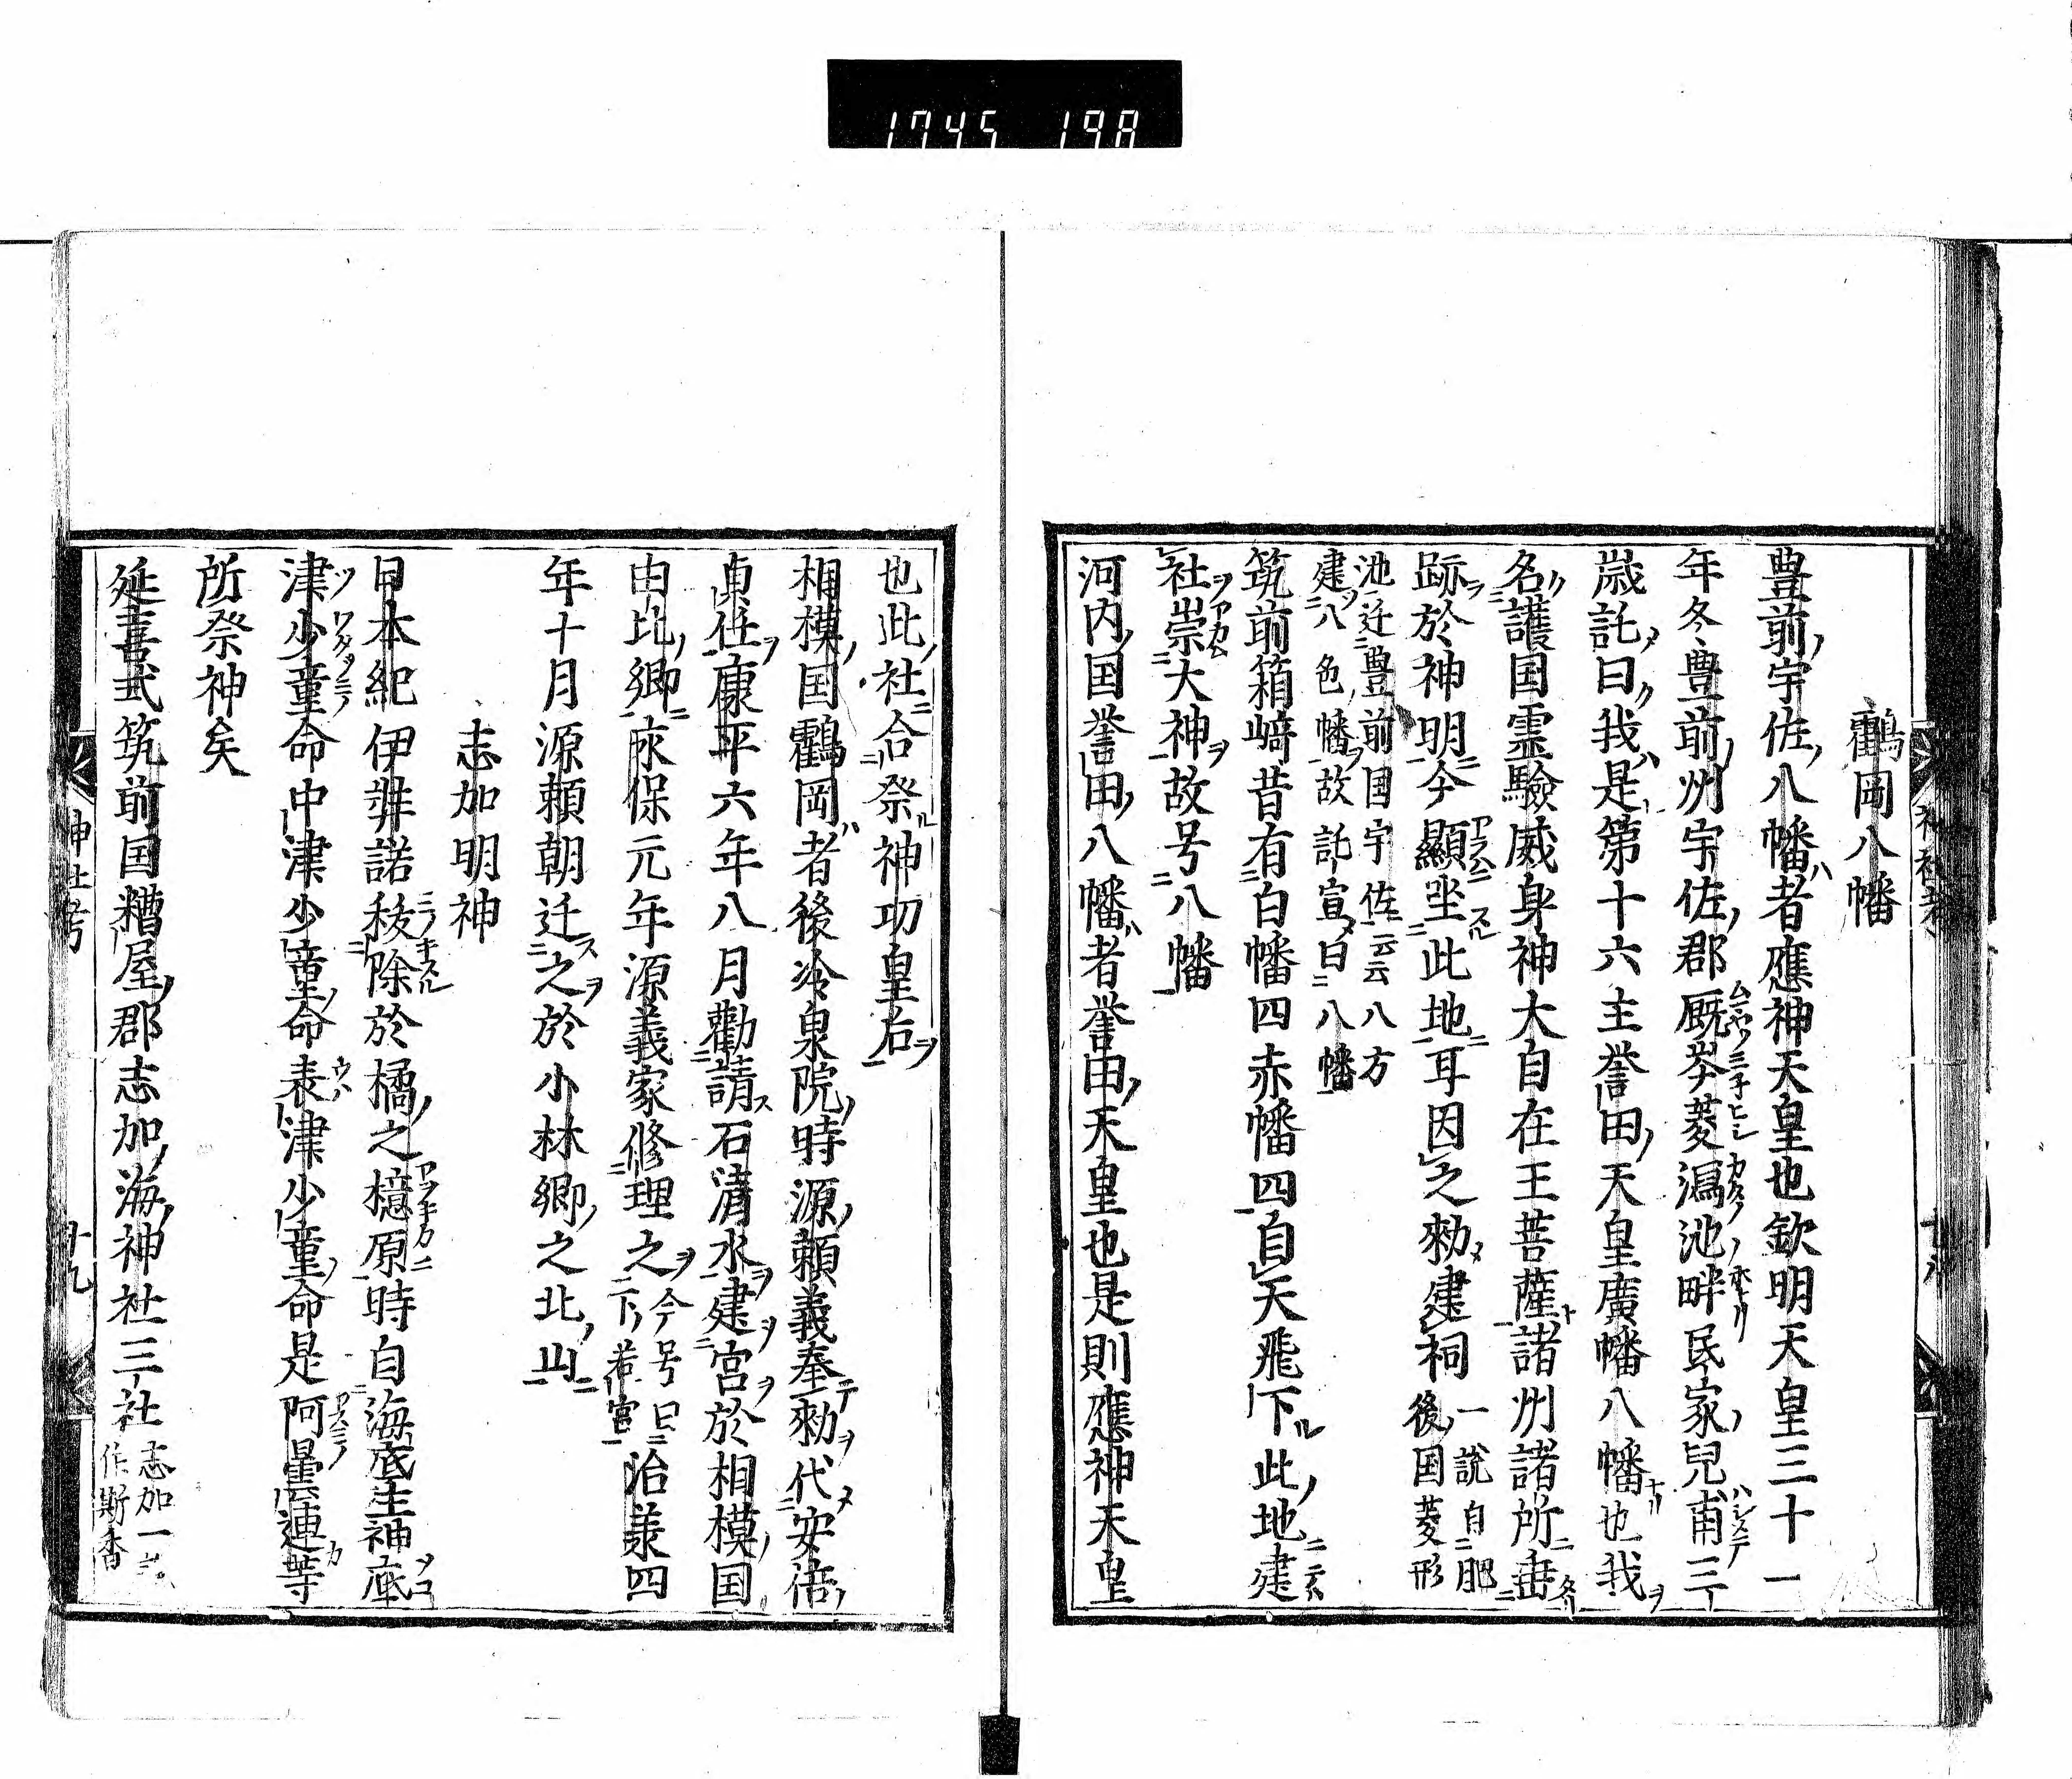 1745 198
鸖岡八幡
豊前宇佐八幡者應神天皇也欽明天皇三十一
年冬豊前州宇佐郡厩岑菱潟池畔民家兒甫三
歳託曰我是第十六主誉田天皇廣幡八幡也我
名護国霊驗威身神大自在王菩薩諸州諸所垂
跡於神明今顯坐此地耳因之勑建祠一説自肥
後国菱形
池迁豊前国宇佐云云八方
建八色幡故託宣曰八幡
筑前箱﨑昔有白幡四赤幡四自天飛下此地建
社崇大神故号八幡
河内国誉田八幡者誉田天皇也是則應神天皇
也此社合祭神功皇后
相模国鸖岡者後冷泉院時源頼義奉勑代安倍
貞任康平六年八月勸請石清水建宮於相模国
由比卿永保元年源義家修理之今号曰
下若宮治羕四
年十月源頼朝迁之於小林卿之北山
志加明神
日本紀伊弉諾秡除於橘之檍原時自海底生神底
津少童命中津少童命表津少童命是阿曇連等
所祭神矣
延喜式筑前国糟屋郡志加海神社三社志加一
作斯香
神社考
十九